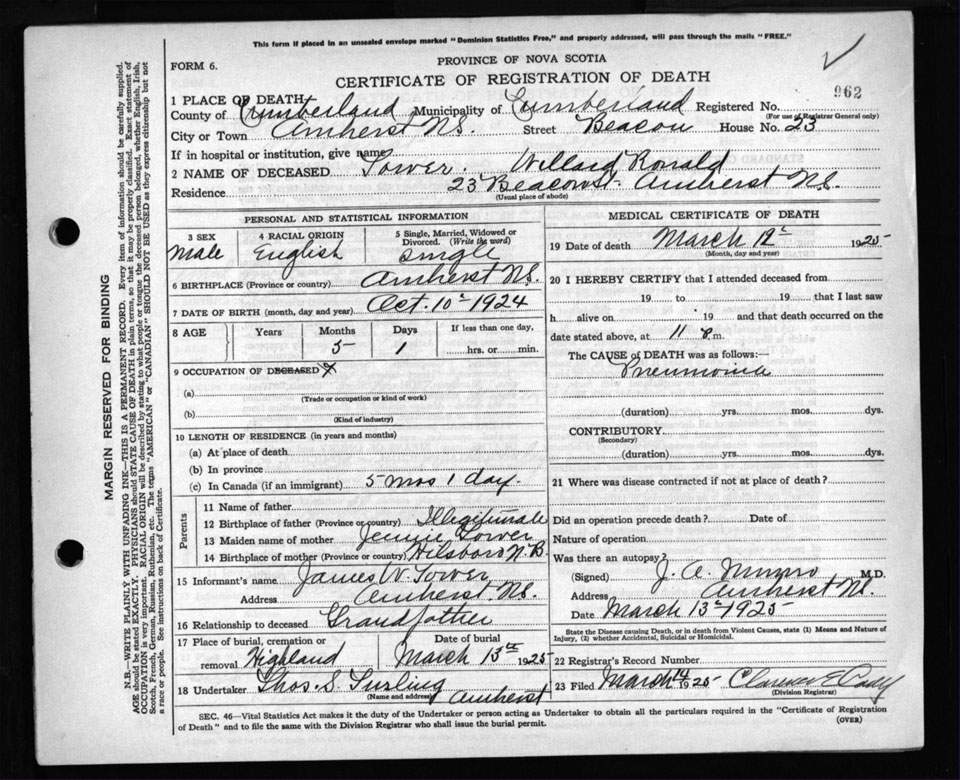 This form if placed in an unsealed envelope marked "Dominion Statistics Free," and properly addressed, will pass through the mails "FREE."
FORM 6.
PROVINCE OF NOVA SCOTIA
CERTIFICATE OF REGISTRATION OF DEATH
962
1 PLACE OF DEATH
County of Cumberland Municipality of Cumberland Registered No.
(For use of Registrar General only)
City or Town Amherst N.S. Street Beacon House No. 23
If in hospital or institution, give name
2 NAME OF DECEASED Tower. Willard Ronald
Residence 23 Beacon St Amherst N.S.
(Usual place of abode)
PERSONAL AND STATISTICAL INFORMATION
3 SEX 4 RACIAL ORIGIN 5 Single, Married, Widowed or Divorced. (Write the word)
Male English Single
6 BIRTHPLACE (Province or country) Amherst N.S.
7 DATE OF BIRTH (month, day and year) Oct. 10 1924
8 AGE Years Months Days If less than one day,
5 1 hrs. or min.
9 OCCUPATION OF DECEASED
(a)
(Trade or occupation or kind of work)
(b)
(Kind of industry)
10 LENGTH OF RESIDENCE (in years and months)
(a) At place of death
(b) In province
(c) In Canada (if an immigrant) 5 mos 1 day.
Parents
11 Name of father
12 Birthplace of father (Province or country) Illegitimate
13 Maiden name of mother Jennie Tower
14 Birthplace of mother (Province or country) Hilsboro N.B.
15 Informant's name James W. Tower
Address Amherst N.S.
16 Relationship to deceased Grandfather
17 Place of burial, cremation or removal Highland
Date of burial March 13th 1925
18 Undertaker Thos. S. Amherst
(Name and address)
MEDICAL CERTIFICATE OF DEATH
19 Date of death March 12 1925
(Month, day and year)
20 I HEREBY CERTIFY that I attended deceased from
19 to 19 that I last saw
h alive on 19 and that death occurred on the
date stated above, at 11 P.m.
The CAUSE of DEATH was as follows:—
Pneumonia
(duration) yrs. mos. dys.
CONTRIBUTORY
(Secondary)
(duration) yrs. mos. dys.
21 Where was disease contracted if not at place of death?
Did an operation precede death? Date of
Nature of operation
Was there an autopsy?
(Signed) J. A. Munro M.D.
Address Amherst N.S.
Date March 13 1925
State the Disease causing Death, or in death from Violent Causes, state (1) Means and Nature of
Injury, (2) whether Accidental, Suicidal or Homicidal.
22 Registrar's Record Number
23 Filed March 14 1925 Clarence E.
(Division Registrar)
SEC. 46—Vital Statistics Act makes it the duty of the Undertaker or person acting as Undertaker to obtain all the particulars required in the "Certificate of Registration
of Death" and to file the same with the Division Registrar who shall issue the burial permit.
(OVER)
MARGIN RESERVED FOR BINDING
N.B.—WRITE PLAINLY WITH UNFADING INK—THIS IS A PERMANENT RECORD. Every item of information should be carefully supplied.
AGE should be stated EXACTLY. PHYSICIANS should STATE CAUSE OF DEATH in plain terms, so that it may be properly classified. Exact statement of
OCCUPATION is very important. RACIAL ORIGIN will be described by stating to what people or tongue the deceased person belonged, whether English, Irish,
Scotch, French, German, Russian, Ruthenian, etc. The terms "AMERICAN" or "CANADIAN" SHOULD NOT BE USED as they express citizenship but not
a race or people. See instructions on back of Certificate.